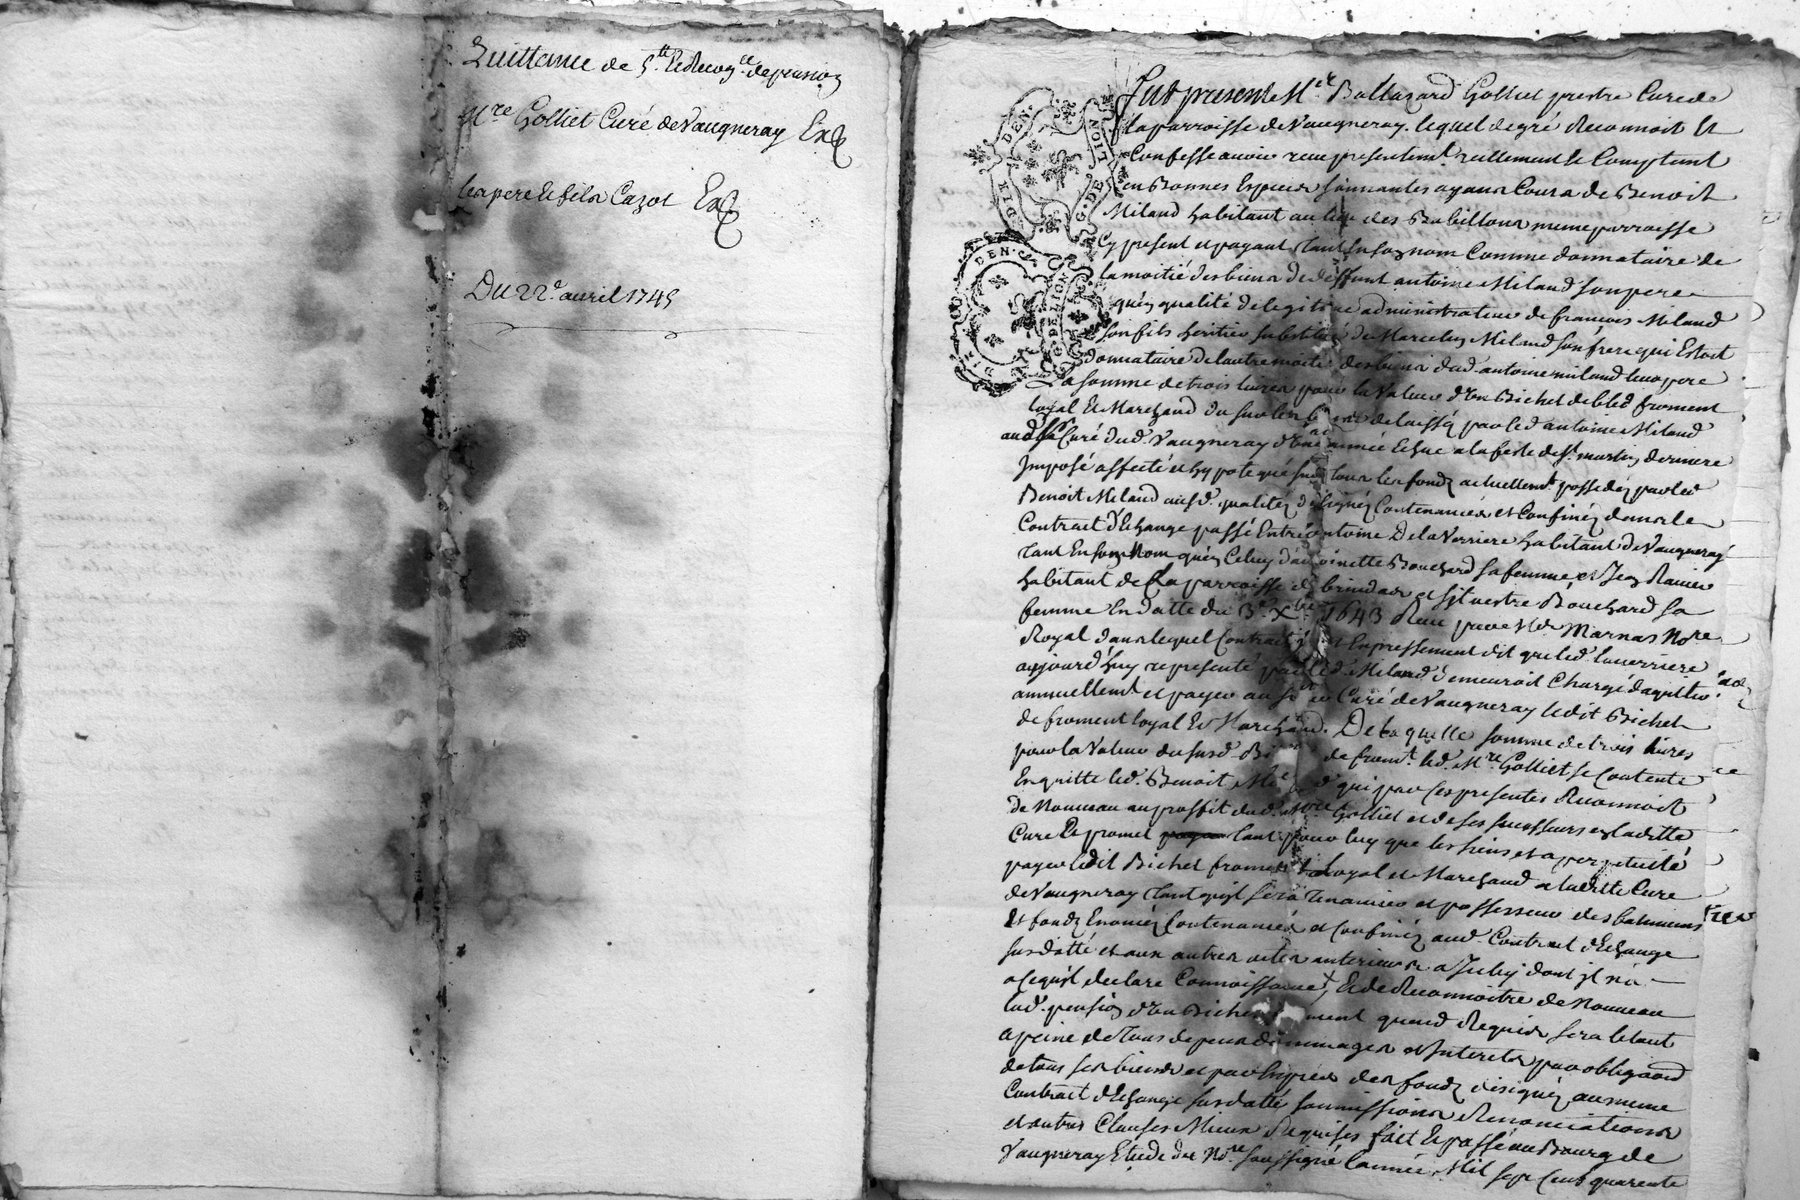 Quittance de 5.tt et Recog.ce de pension
M.re Golliet Curé de Vaugneray Exp
les pere et fils Cazot Exp
Du 22.e avril 1745
Fut present M.re Baltazard Golliet prestre Curé de
la parroisse de Vaugneray. lequel de gré Reconnoit et
Confesse avoir receu presentem.t reellement et Comptant
en Bonnes Especes sonnantes ayans Cours de Benoit
Milaud habitant au lieu des Babillons meme parroisse
Cy present et payant tant en son nom Comme donnataire de
la moitié des biens de deffunt antoine Milaud son pere
qu'en qualité de legitime administrateur de francois Milaud
son fils heritier substitué de Marcelin Milaud son frere qui Estoit
donnataire de l'autre moitié des biens dud. antoine milaud leur pere
La somme de trois livres pour la Valeur d'un Bichet de bled froment
loyal et Marchand du sur les biens delaissés par led antoine Milaud
aud. Sr. Curé dud. Vaugneray d'une année Echue a la feste de St. martin derniere
Imposé affecté et hypotequé sur tous les fonds actuellem.t possedés par led
Benoit Milaud ausd. qualitez designés Contenancés et Confinés dans le
Contract d'Echange passé Entre antoine De la Verriere habitant de Vaugneray
tant En son Nom qu'en Celuy d'antoinette Bouchard sa femme et Jean Ravier
habitant de la parroisse de brindas et silvestre Bouchard sa
femme En datte du 3.e Xbre 1643 Receu par M.e Marnas No.re
Royal dans lequel Contract il est Expressement dit que led. laverriere
aujourd'huy representé par led. Milaud demeuroit Chargé d'aquitter
annuellem.t et payer au Sieur Curé de Vaugneray ledit Bichet
de froment loyal et Marchand. De laquelle somme de trois livres
pour la Valeur du susd. Bichet de from.t led. M.re Golliet se Contente
En quitte led. Benoit Milaud qui par ces presentes Reconnoit
de Nouveau au proffit dud. M.re Golliet et de ses successeurs en laditte
Cure Et promet tant pour luy que les siens et a perpetuité
payer ledit Bichet froment Loyal et Marchand a laditte Cure
de Vaugneray tant qu'il sera Tenancier et possesseur des batimens
Et fonds Enoncés Contenancés et Confinés aud. Contract d'Echange
sus datté et aux autres actes anterieurs a Iceluy dont il n'a
a ce qu'il declare Connoissance, Et de Reconnoitre de Nouveau
lad. pension d'un Bichet froment quand Requis sera le tout
a peine de tous depens dommages et Interets par oblig.aon
de tous ses biens et par Exprés des fonds designés au meme
Contract d'Echange sus datté soumissions Renonciations
et autres Clauses Mieux Requises fait Et passé au Bourg de
Vaugneray Etude du No.re soussigné L'année Mil sept Cens quarente